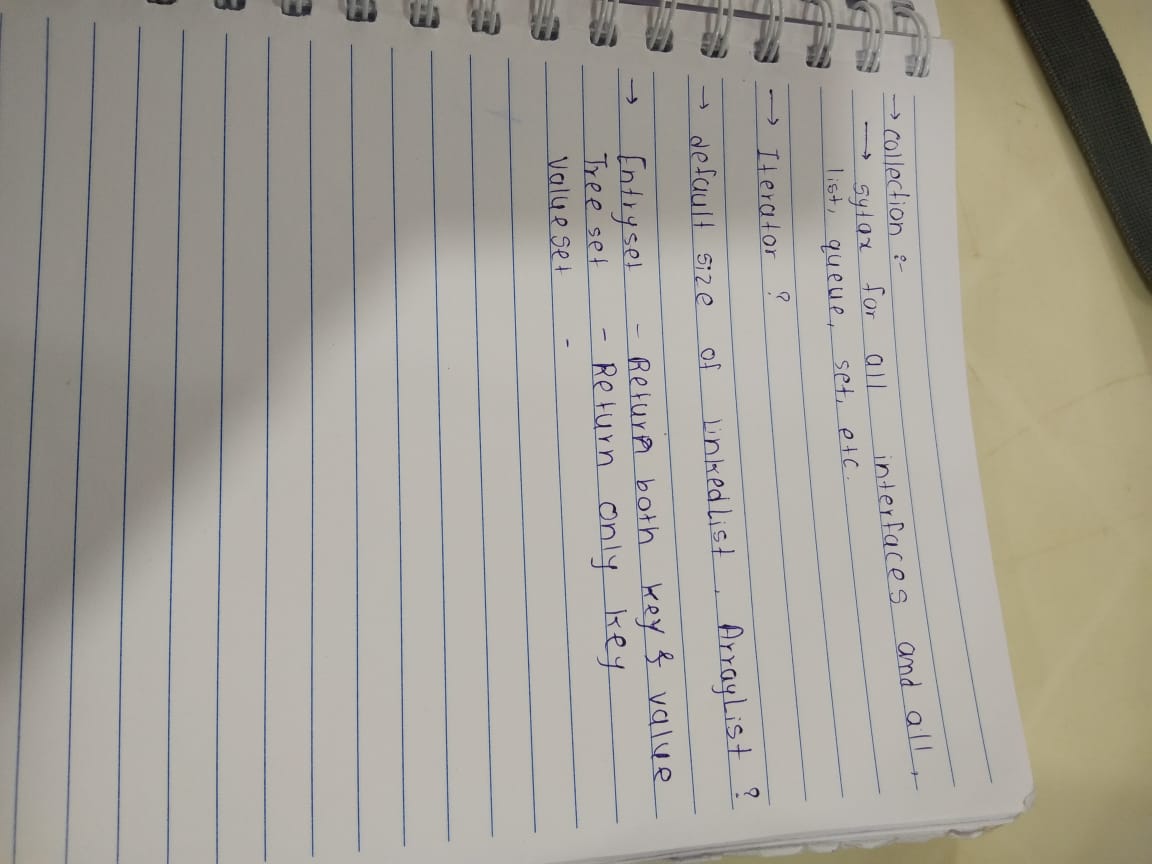 → collection :-
→ sytax for all interfaces and all,
list, queue, set, etc.
→ Iterator ?
→ default size of linkedlist, ArrayList ?
→ Entryset - Return both key & value
Tree set - Return only key
Value set -